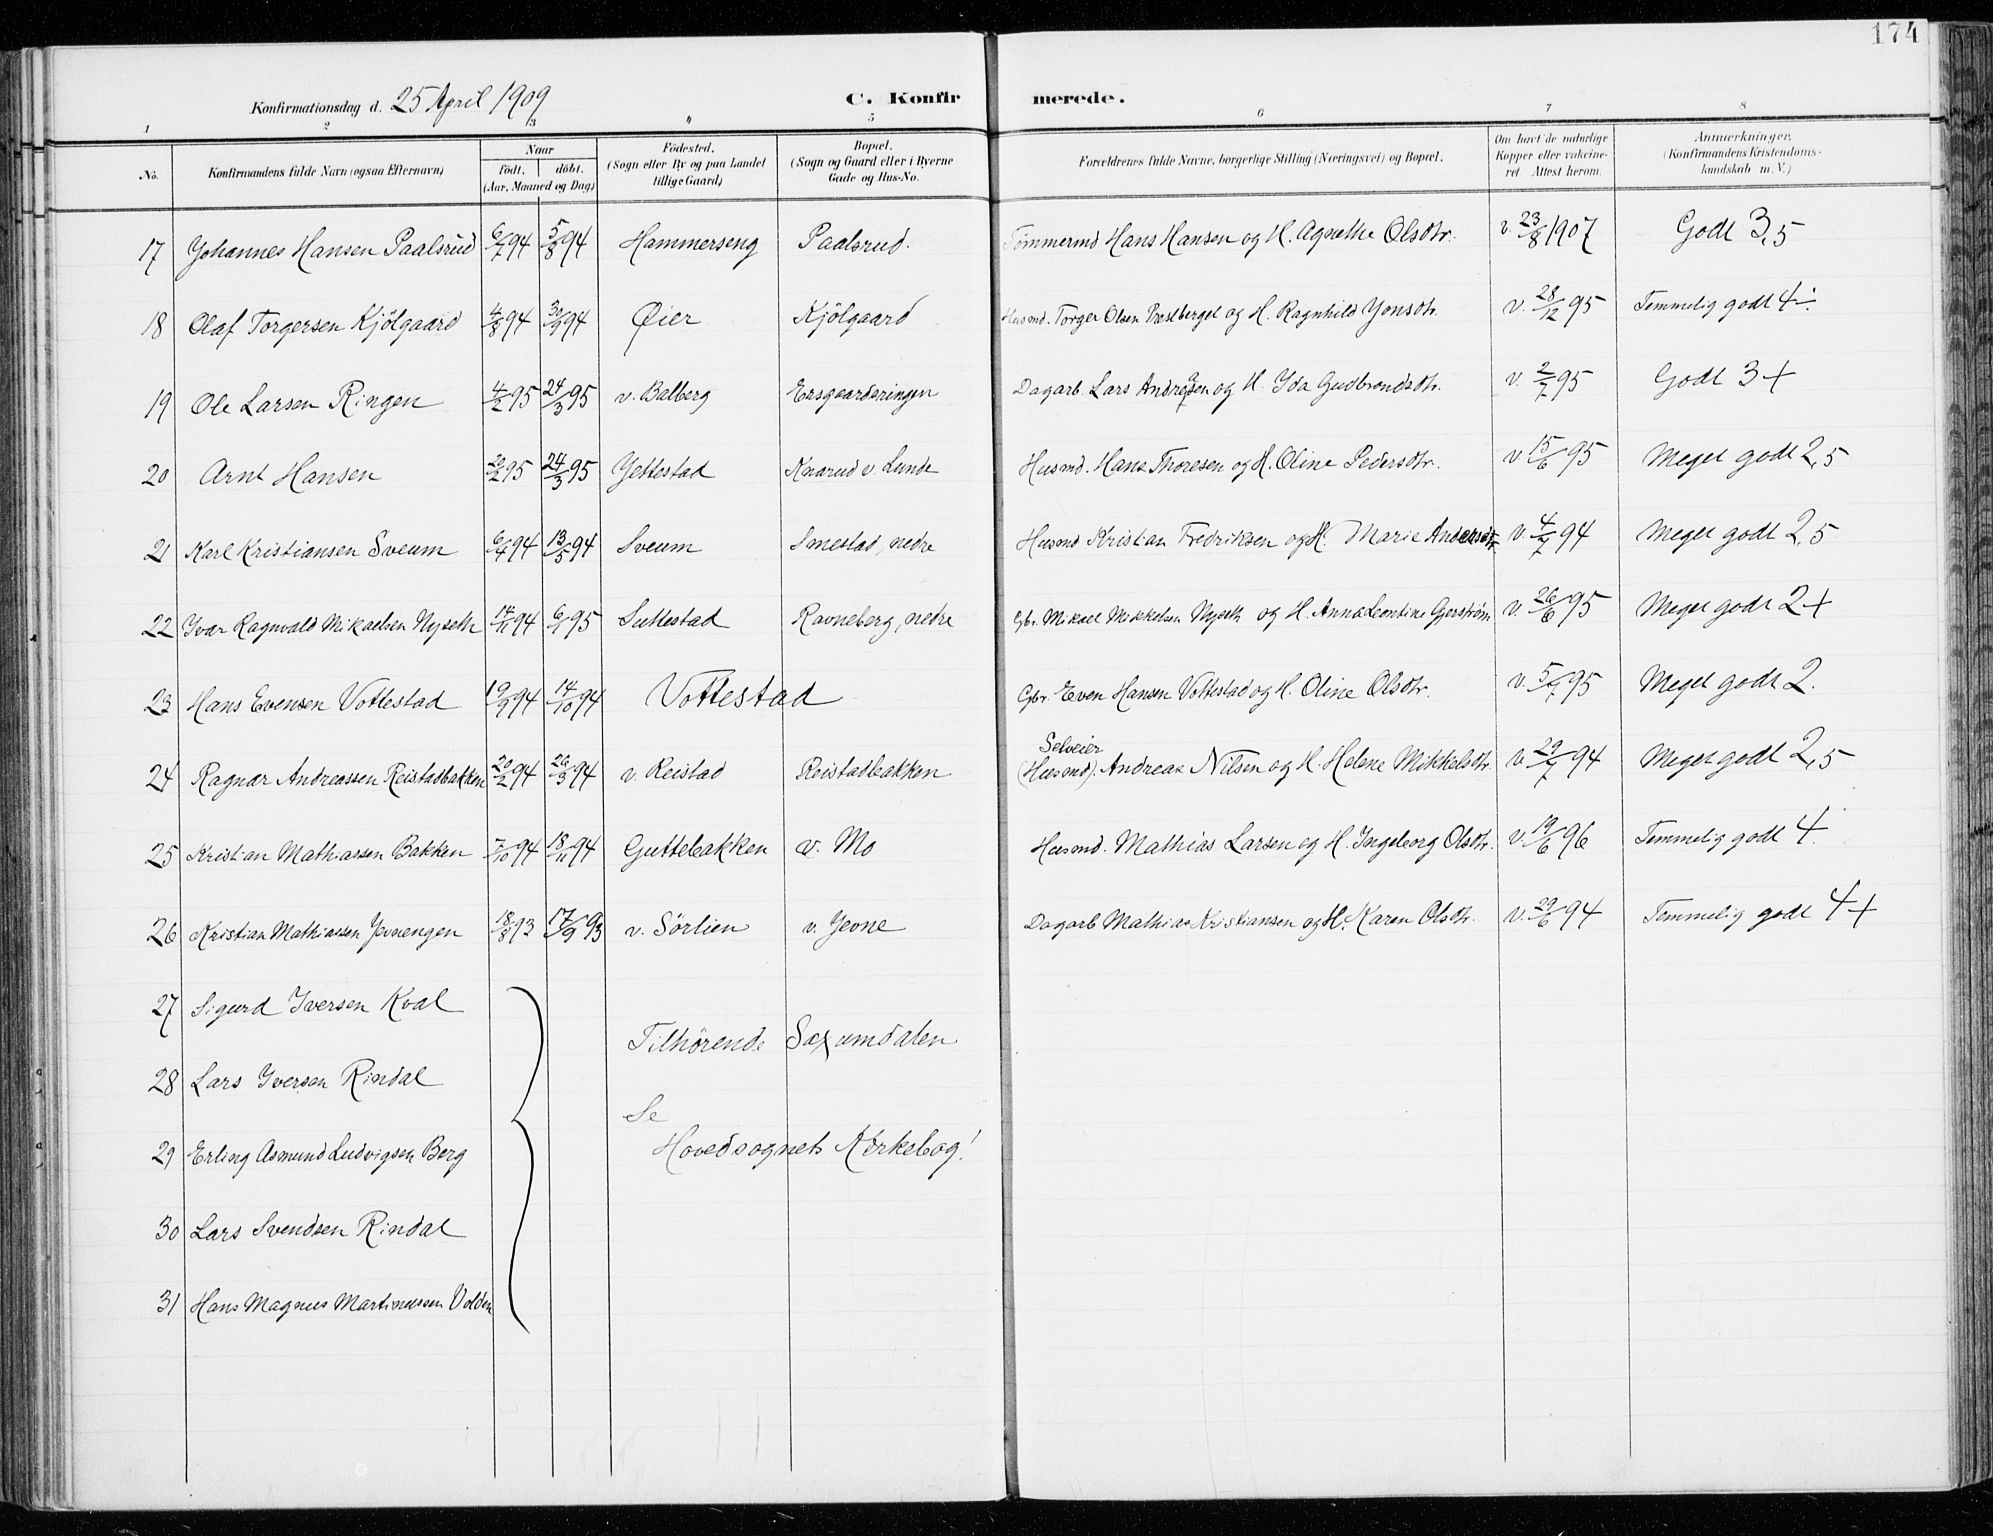 174
Konfirmationsdag d. 25 April 1909 C. Konfir merede.
1 2 3 4 5 6 7 8
No. Konfirmandens fulde Navn (ogsaa Efternavn) Naar födt. döbt. (Aar, Maaned og Dag) Födested. (Sogn eller By og paa Landet tillige Gaard) Bopæl. (Sogn og Gaard eller i Byerne Gade og Hus-No. Forældrenes fulde Navne, borgerlige Stilling (Næringsvei) og Bopæl. Om havt de naturlige Kopper eller vakcineret. Attest herom. Anmærkninger. (Konfirmandens Kristendomskundskab m. V.)
17 Johannes Hansen Paalsrud 6/7 94 5/8 94 Hammerseng Paalsrud. Tömmermd Hans Hansen og H. Agnethe Olsdtr. v. 23/8 1907 Godt 3,5
18 Olaf Torgersen Kjölgaard 4/8 94 30/9 94 Øier Kjölgaard Husmd. Torger Olsen Præstberget og H. Ragnhild Jonsdtr. v. 28/12 95 Temmelig godt 4÷
19 Ole Larsen Ringen 4/2 95 24/3 95 v. Balberg Ersgaardsringen Dagarb. Lars Andreasen og H. Ida Gudbrandsdtr. v. 2/7 95 Godt 3+
20 Arnt Hansen 20/2 95 24/3 95 Jettestad Kaarud v. Lunde Husmd. Hans Thoresen og H. Oline Pedersdtr. v 15/6 95 Meget godt 2,5
21 Karl Kristiansen Sveum 6/4 94 13/5 94 Sveum Smestad, nedre Husmd Kristian Fredriksen og H. Marie Andersdtr v. 4/7 94 Meget godt 2,5
22 Ivar Ragnvald Mikaelsen Nyseth 14/11 94 6/1 95 Suttestad Ravneberg, nedre Gbr. Mikael Mikkelsen Nyseth og H. Anna Leontine Gjerström v. 26/6 95 Meget godt 2+
23 Hans Evensen Vottestad 19/9 94 14/10 94 Vottestad Gbr. Even Hansen Vottestad og H. Oline Olsdtr. v. 5/7 95 Meget godt 2.
24 Ragnar Andreassen Reistadbakken 20/2 94 26/3 94 v. Reistad Reistadbakken Selveier (Husmd). Andreas Nilsen og H. Helene Mikkelsdtr v. 29/7 94 Meget godt 2,5
25 Kristian Mathiassen Bakken 7/10 94 18/11 94 Guttebakken v. Mo Husmd. Mathias Larsen og H. Ingeborg Olsdtr. v. 19/6 96 Temmelig godt 4.
26 Kristian Mathiassen Jevnengen 18/8 93 17/9 93 v. Sörlien v. Jevne Dagarb Mathias Kristiansen og H. Karen Olsdtr. v. 29/6 94 Temmelig godt 4+
27 Sigurd Iversen Kval
Tilhörende Saxumdalen
28 Lars Iversen Rindal
Se
Hovedsognets Kirkebog!
29 Erling Asmund Ludvigsen Berg
30 Lars Svendsen Rindal
31 Hans Magnus Martinussen Volden